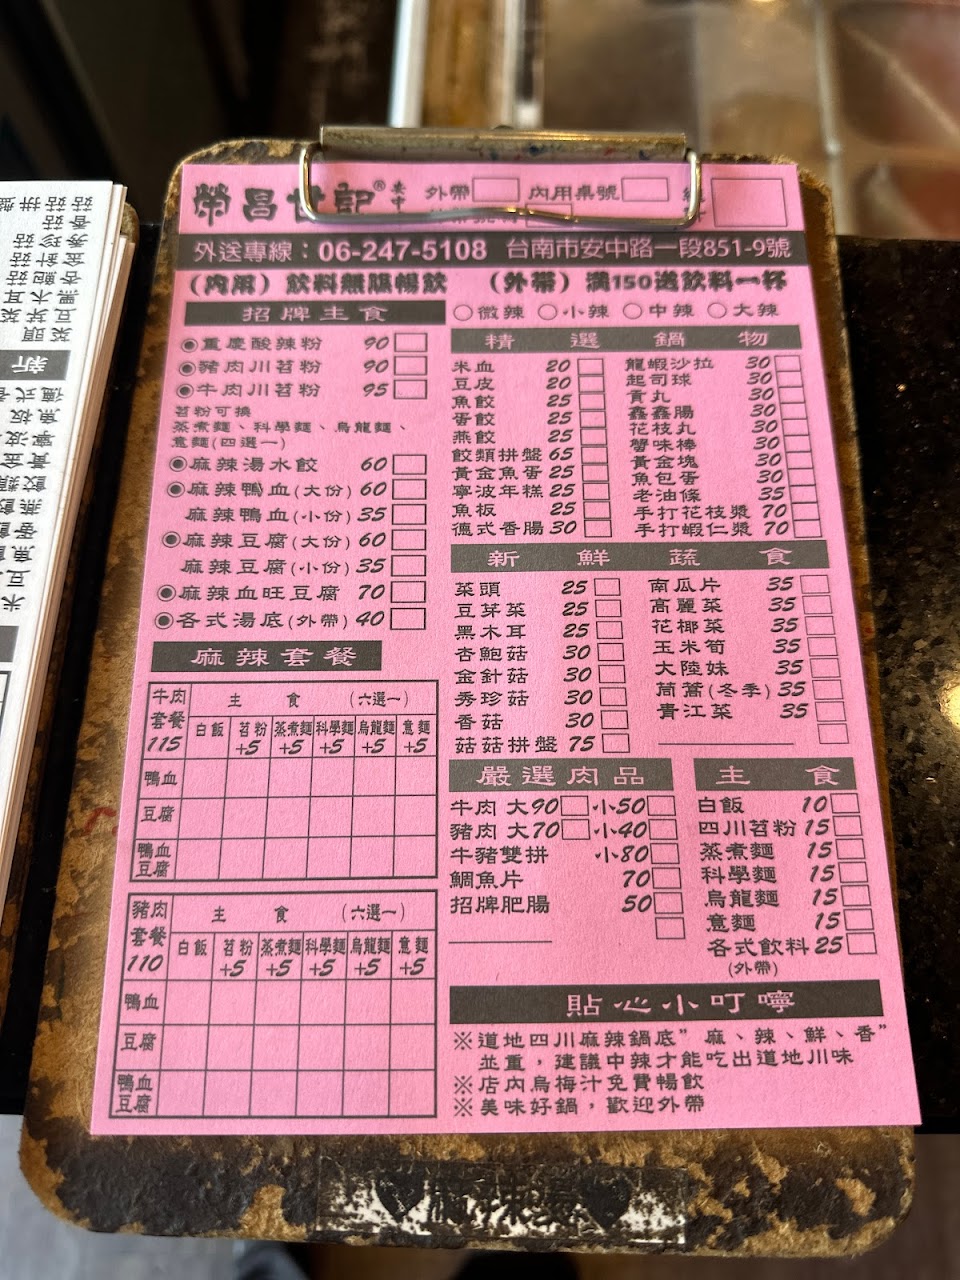 榮昌世記® 安中 外帶 內用桌號
外送專線：06-247-5108 台南市安中路一段851-9號
（內用）飲料無限暢飲 （外帶）滿150送飲料一杯
招牌主食
重慶酸辣粉 90
豬肉川苕粉 90
牛肉川苕粉 95
苕粉可換
蒸煮麵、科學麵、烏龍麵、
意麵(四選一)
麻辣湯水餃 60
麻辣鴨血(大份) 60
麻辣鴨血(小份) 35
麻辣豆腐(大份) 60
麻辣豆腐(小份) 35
麻辣血旺豆腐 70
各式湯底(外帶) 40
麻辣套餐
牛肉套餐 115 主食 (六選一)
白飯 苕粉+5 蒸煮麵+5 科學麵+5 烏龍麵+5 意麵+5
鴨血
豆腐
鴨血豆腐
豬肉套餐 110 主食 (六選一)
白飯 苕粉+5 蒸煮麵+5 科學麵+5 烏龍麵+5 意麵+5
鴨血
豆腐
鴨血豆腐
微辣 小辣 中辣 大辣
精選鍋物
米血 20
豆皮 20
魚餃 25
蛋餃 25
燕餃 25
餃類拼盤 65
黃金魚蛋 25
寧波年糕 25
魚板 25
德式香腸 30
龍蝦沙拉 30
起司球 30
貢丸 30
鑫鑫腸 30
花枝丸 30
蟹味棒 30
黃金塊 30
魚包蛋 30
老油條 35
手打花枝漿 70
手打蝦仁漿 70
新鮮蔬食
菜頭 25
豆芽菜 25
黑木耳 25
杏鮑菇 30
金針菇 30
秀珍菇 30
香菇 30
菇菇拼盤 75
南瓜片 35
高麗菜 35
花椰菜 35
玉米筍 35
大陸妹 35
茼蒿(冬季) 35
青江菜 35
嚴選肉品
牛肉 大90 小50
豬肉 大70 小40
牛豬雙拼 小80
鯛魚片 70
招牌肥腸 50
主食
白飯 10
四川苕粉 15
蒸煮麵 15
科學麵 15
烏龍麵 15
意麵 15
各式飲料 25
(外帶)
貼心小叮嚀
※道地四川麻辣鍋底”麻、辣、鮮、香”
並重，建議中辣才能吃出道地川味
※店內烏梅汁免費暢飲
※美味好鍋，歡迎外帶